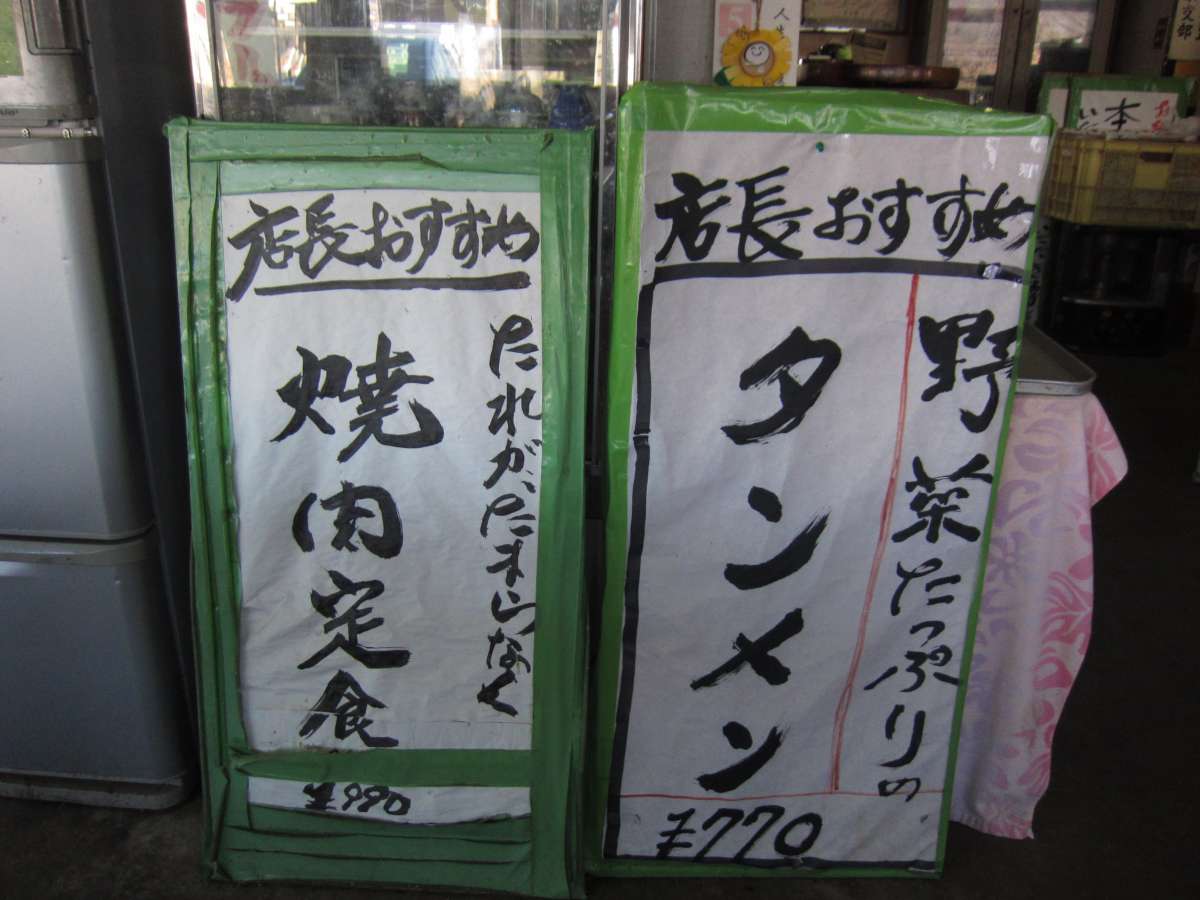 店長おすすめ
たれが、たまらなく
焼肉定食
¥990
店長おすすめ
野菜たっぷりの
タンメン
¥770
本